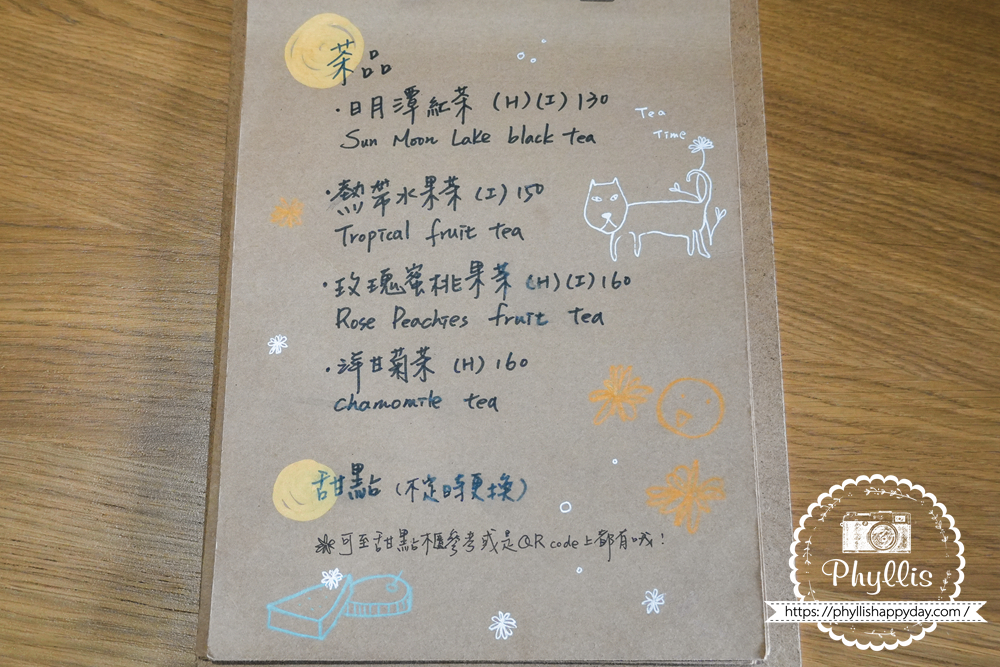 茶品
·日月潭紅茶 (H)(I) 130
Sun Moon Lake black tea
Tea
Time
·熱帶水果茶 (I) 150
Tropical fruit tea
·玫瑰蜜桃果茶 (H)(I) 160
Rose Peachies fruit tea
·洋甘菊茶 (H) 160
chamomile tea
甜點 (不定時更換)
※可至甜點櫃參考或是QR code上都有哦!
Phyllis
https://phyllishappyday.com/